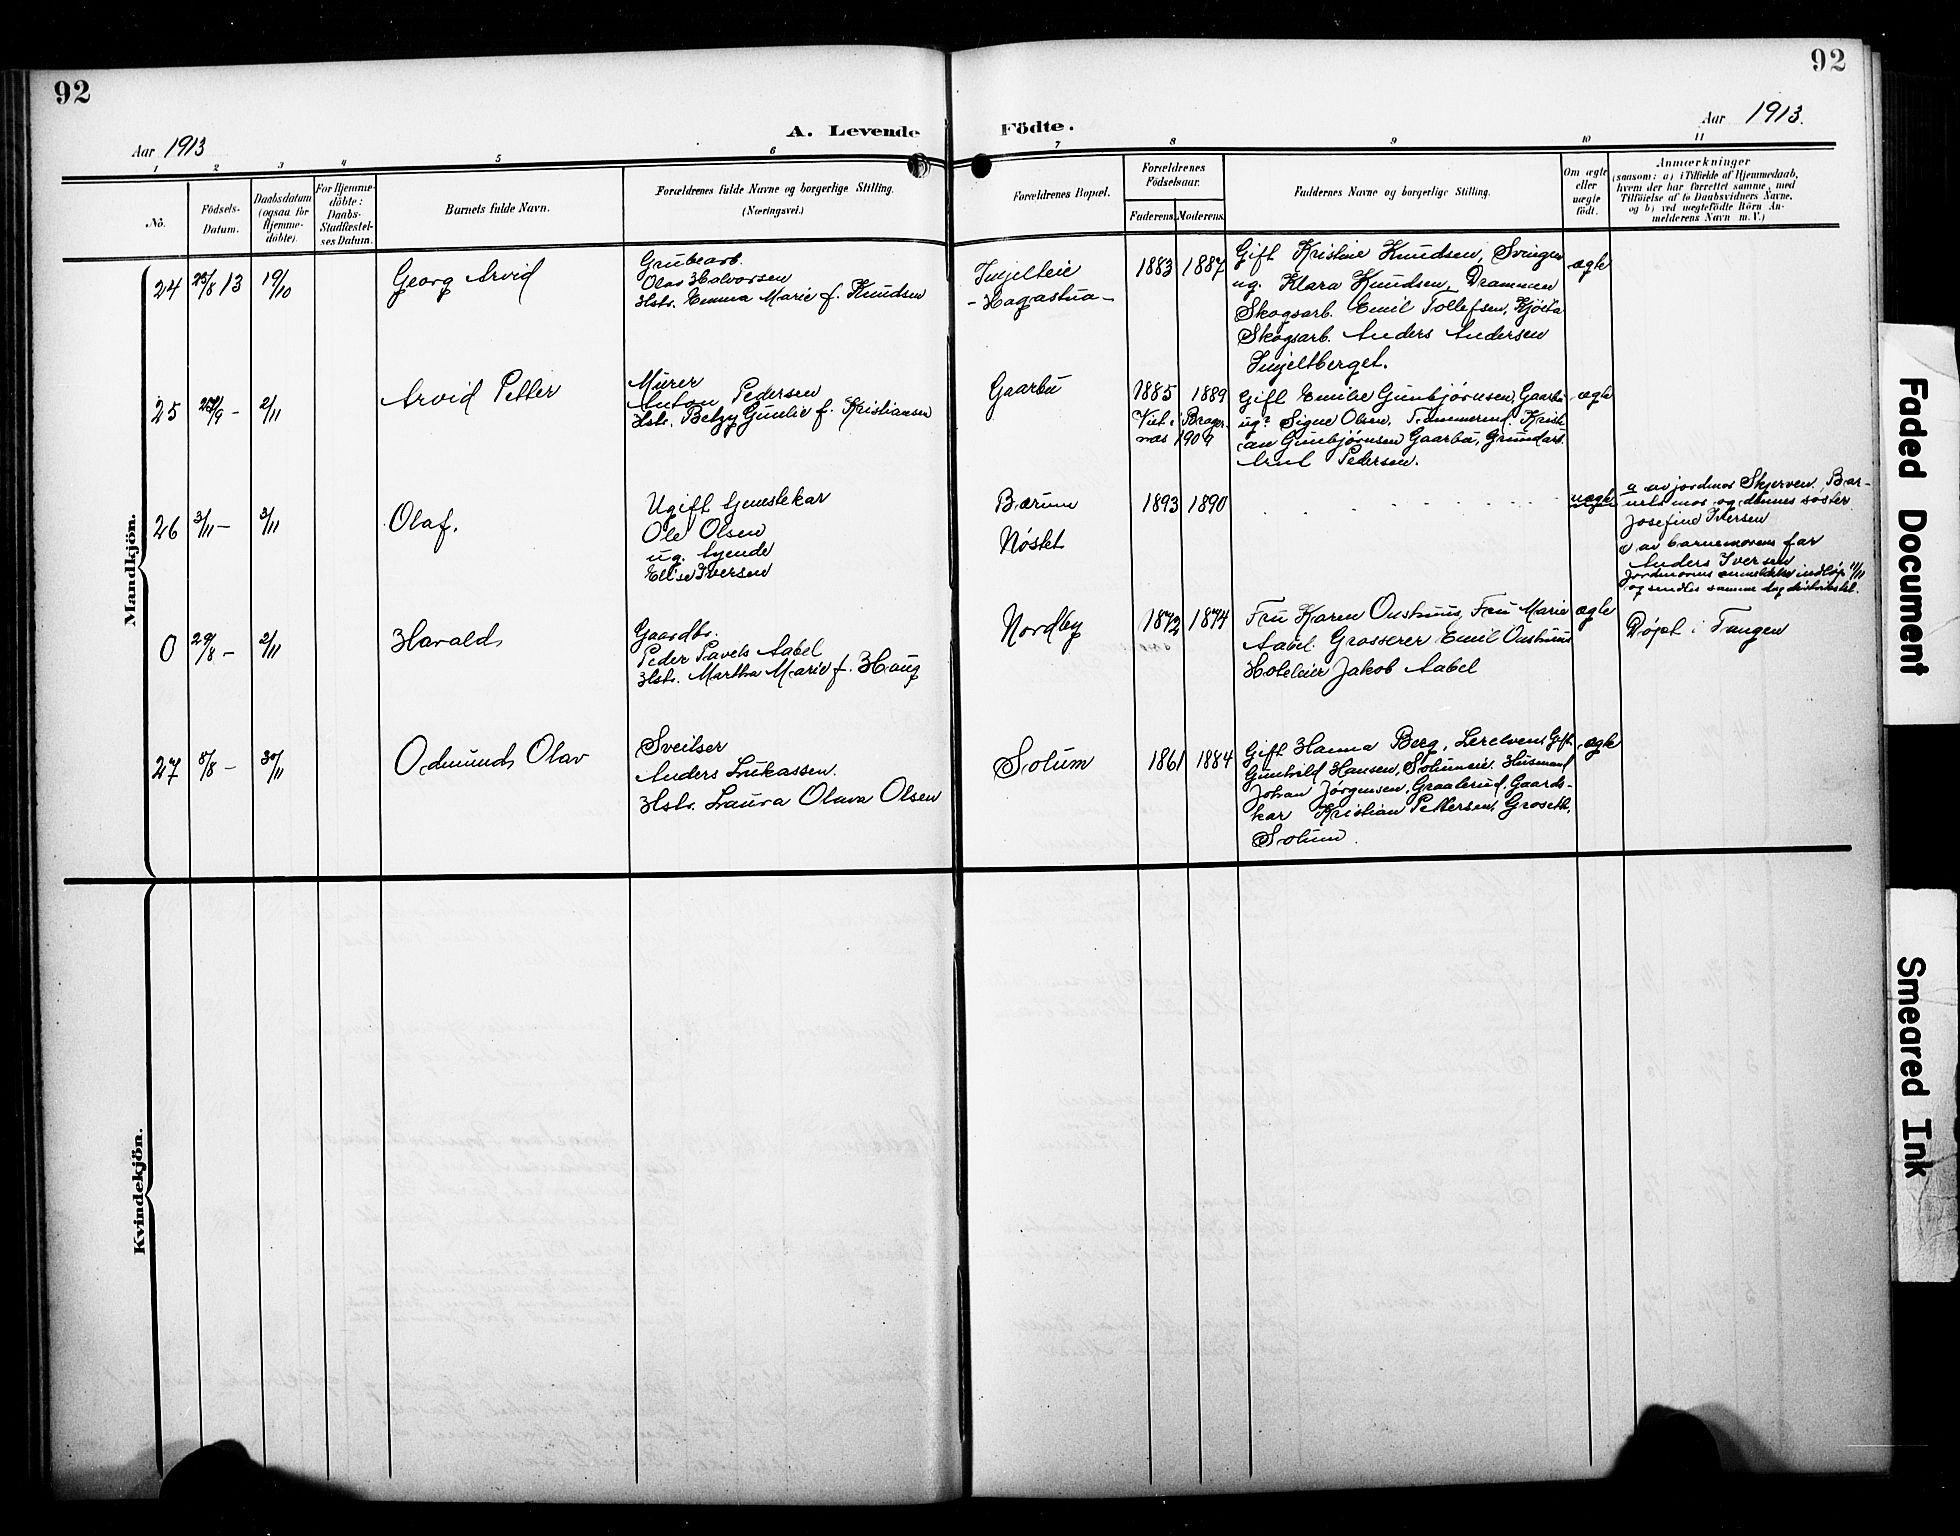 92
92
Aar 1913
A. Levende Födte.
Aar 1913.
1 2 3 4 5 6 7 8 9 10 11
No.
Födsels-
Datum.
Daabsdatum
(ogsaa for
Hjemme-
döbte).
For Hjemme-
döbte:
Daabs-
Stadfæstel-
ses Datum.
Barnets fulde Navn.
Forældrenes fulde Navne og borgerlige Stilling.
(Næringsvei.)
Forældrenes Bopæl.
Forældrenes
Födselsaar.
Faderens. Moderens.
Faddernes Navne og borgerlige Stilling.
Om ægte
eller
uægte
födt.
Anmærkninger
(saasom: a) i Tilfælde af Hjemmedaab,
hvem der har forrettet samme, med
Tilföielse af to Daabsvidners Navne,
og b) ved uægtefödte Börn An-
melderens Navn m. V.)
Mandkjön.
24
25/8 13
19/10
Georg Arvid
Grubearb.
Olaf Halvorsen
Hstr. Emma Marie f. Knudsen
-Hagastua-
1883 1887
Gift Kristine Knudsen, Svingen
ug. Klara Knudsen, Drammen
Skogsarb. Emil Tollefsen,
Skogsarb. Anders Andersen
ægte
25
2/11
Arvid Petter
Murer
Anton Pedersen
Hstr. Betzy Gunlie f. Kristiansen
Gaarbu
1885 1889
Viet i Brager-
næs 1909
Gift Emilie Gunbjörnsen, Gaarbu
ug? Signe Olsen, Trommerud. Kristi-
an Gunbjörnsen Gaarbu, Grundarb.
Arnt Pedersen.
ægte
26
3/11 -
3/11
Olaf.
Ugift tjenestekar
Ole Olsen
ug. tyende
Elise Iversen
Bærum
Nøstet
1893 1890
uægte
a av jordmor Skjerven, Bar-
nets mor og dennes søster
Josefine Petersen
b av barnemorens far
Anders Iversen
Jordmorens anmeldelse indløp 11/11
og sendtes samme dag
0
29/8 -
2/11
Harald
Gaardbr.
Peder Pavels Aabel
Hstr. Martha Marie f. Haug
Nordby
1872 1874
Fru Karen Onstrus, Fru Marie
Aabel. Grosserer Emil Onstrus
Hoteleier Jakob Aabel
ægte
Døpt i Tangen
27
8/8 -
30/11
Odmund Olav
Sveitser
Anders Lukassen.
Hstr. Laura Olava Olsen
Solum
1861 1884
Gift Hanna Berg, Lerelven, Gift
Gunhild Hansen, Solumeie. Husmand
Johan Jørgensen, Graalerud. Gaards-
kar Kristian Pettersen, Groseth,
Solum.
ægte
Kvindekjön.
Faded Document
Smeared Ink